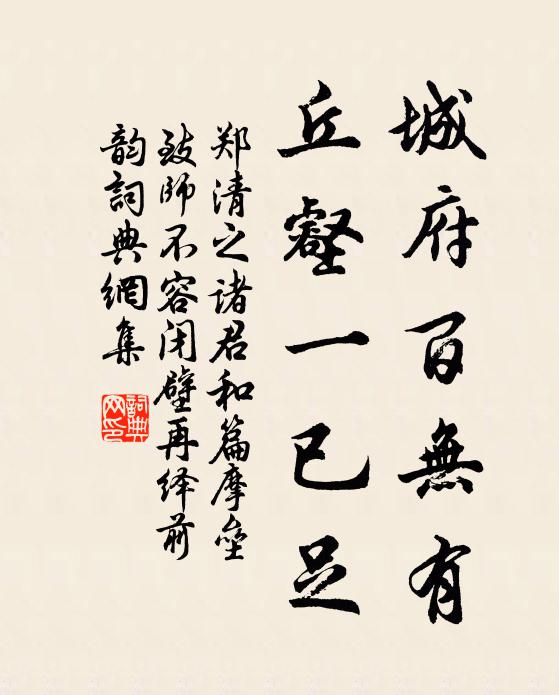 城府百無有
丘壑一已足
郑清之诸君和篇摩垒
致師不容闭壁再绎前
韵詞典網集
詞典
网印